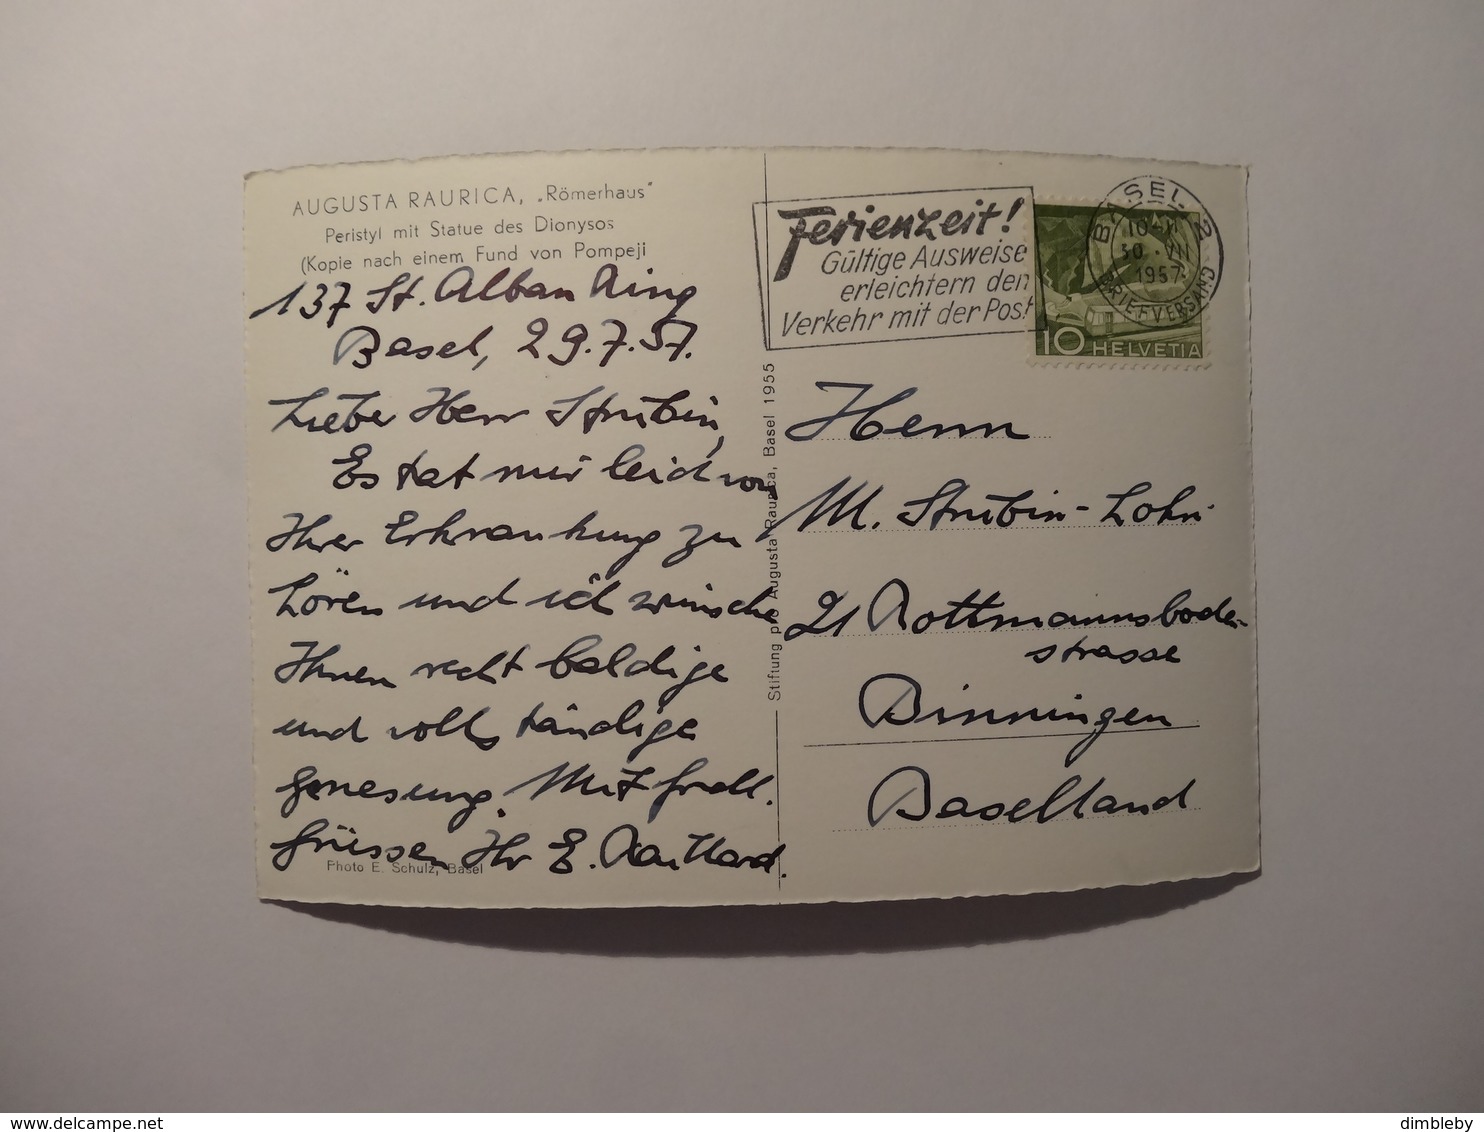 AUGUSTA RAURICA, „Römerhaus"
Peristyl mit Statue des Dionysos
(Kopie nach einem Fund von Pompeji
137 St. Alban Ring
Basel, 29.7.57.
Liebe Herr Strübin,
Es tat mir leid von
Ihrer Erkrankung zu
hören und ich wünsche
Ihnen recht baldige
und vollständige
genesung. Mit frdl.
Grüssen Ihr E.
Photo E. Schulz, Basel
Stiftung pro Augusta Raurica, Basel 1955
Ferienzeit!
Gültige Ausweise
erleichtern den
Verkehr mit der Post
BASEL 2
30. VII
1957
BRIEFVERSAND
10 HELVETIA
Herrn
M. Strübin-Lohri
21 Rottmannsboden-
strasse
Binningen
Baselland
delcampe.net
dimbleby